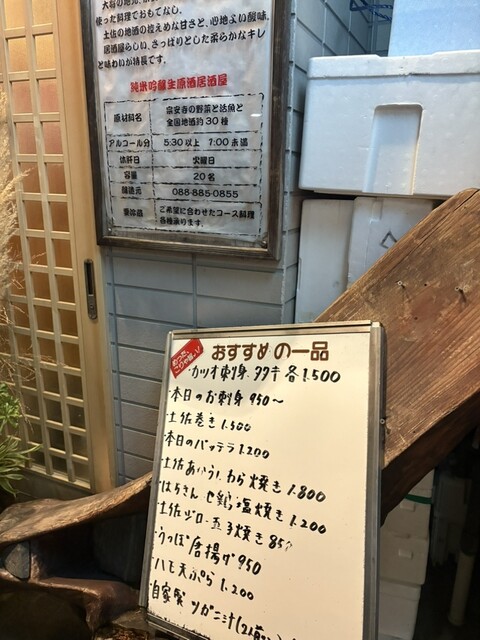 使った料理でおもてなし。
土佐の地酒の控えめな甘さと、心地よい酸味。
居酒屋らしい、さっぱりとした柔らかなキレ
と味わいが特長です。
純米吟醸生原酒居酒屋
原材料名 宗安寺の野菜と活魚と
全国地酒約30種
アルコール分 5:30以上 11:00未満
休肝日 火曜日
容量 20名
醸造元 088-885-0855
要冷蔵 ご希望に合わせたコース料理
各種承ります。
おすすめの一品
・カツオ刺身、タタキ 各1.500
・本日のお刺身 950〜
・土佐巻き 1.500
・本日のバッテラ 1.200
・土佐あかうしわら焼き 1.800
・はちきん地鶏塩焼き 1.200
・土佐ジロー玉子焼き 850
・うつぼ唐揚げ 950
・ハモ天ぷら 1.200
・自家製 ツガニ汁